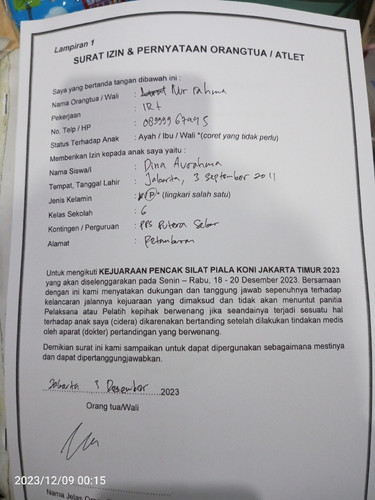 Lampiran 1
SURAT IZIN & PERNYATAAN ORANGTUA / ATLET
Saya yang bertanda tangan dibawah ini :
Nama Orangtua / Wali : Nur rahma
Pekerjaan : IRT
No, Telp / HP :
Status Terhadap Anak : Ayah / Ibu / Wali *(coret yang tidak perlu)
Memberikan Izin kepada anak saya yaitu :
Nama Siswa/i : Dina Aurahma
Tempat, Tanggal Lahir : Jakarta, 3 September 2011
Jenis Kelamin : L/P* (lingkari salah satu)
Kelas Sekolah : 6
Kontingen / Perguruan : PPS Putera
Alamat : Petamburan
Untuk mengikuti KEJUARAAN PENCAK SILAT PIALA KONI JAKARTA TIMUR 2023
yang akan diselenggarakan pada Senin – Rabu, 18 - 20 Desember 2023. Bersamaan
dengan ini kami menyatakan dukungan dan tanggung jawab sepenuhnya terhadap
kelancaran jalannya kejuaraan yang dimaksud dan tidak akan menuntut panitia
Pelaksana atau Pelatih kepihak berwenang jika seandainya terjadi sesuatu hal
terhadap anak saya (cidera) dikarenakan bertanding setelah dilakukan tindakan medis
oleh aparat (dokter) pertandingan yang berwenang.
Demikian surat ini kami sampaikan untuk dapat dipergunakan sebagaimana mestinya
dan dapat dipertanggungjawabkan.
Jakarta 3 Desember 2023
Orang tua/Wali
2023/12/09 00:15
Nama Jelas